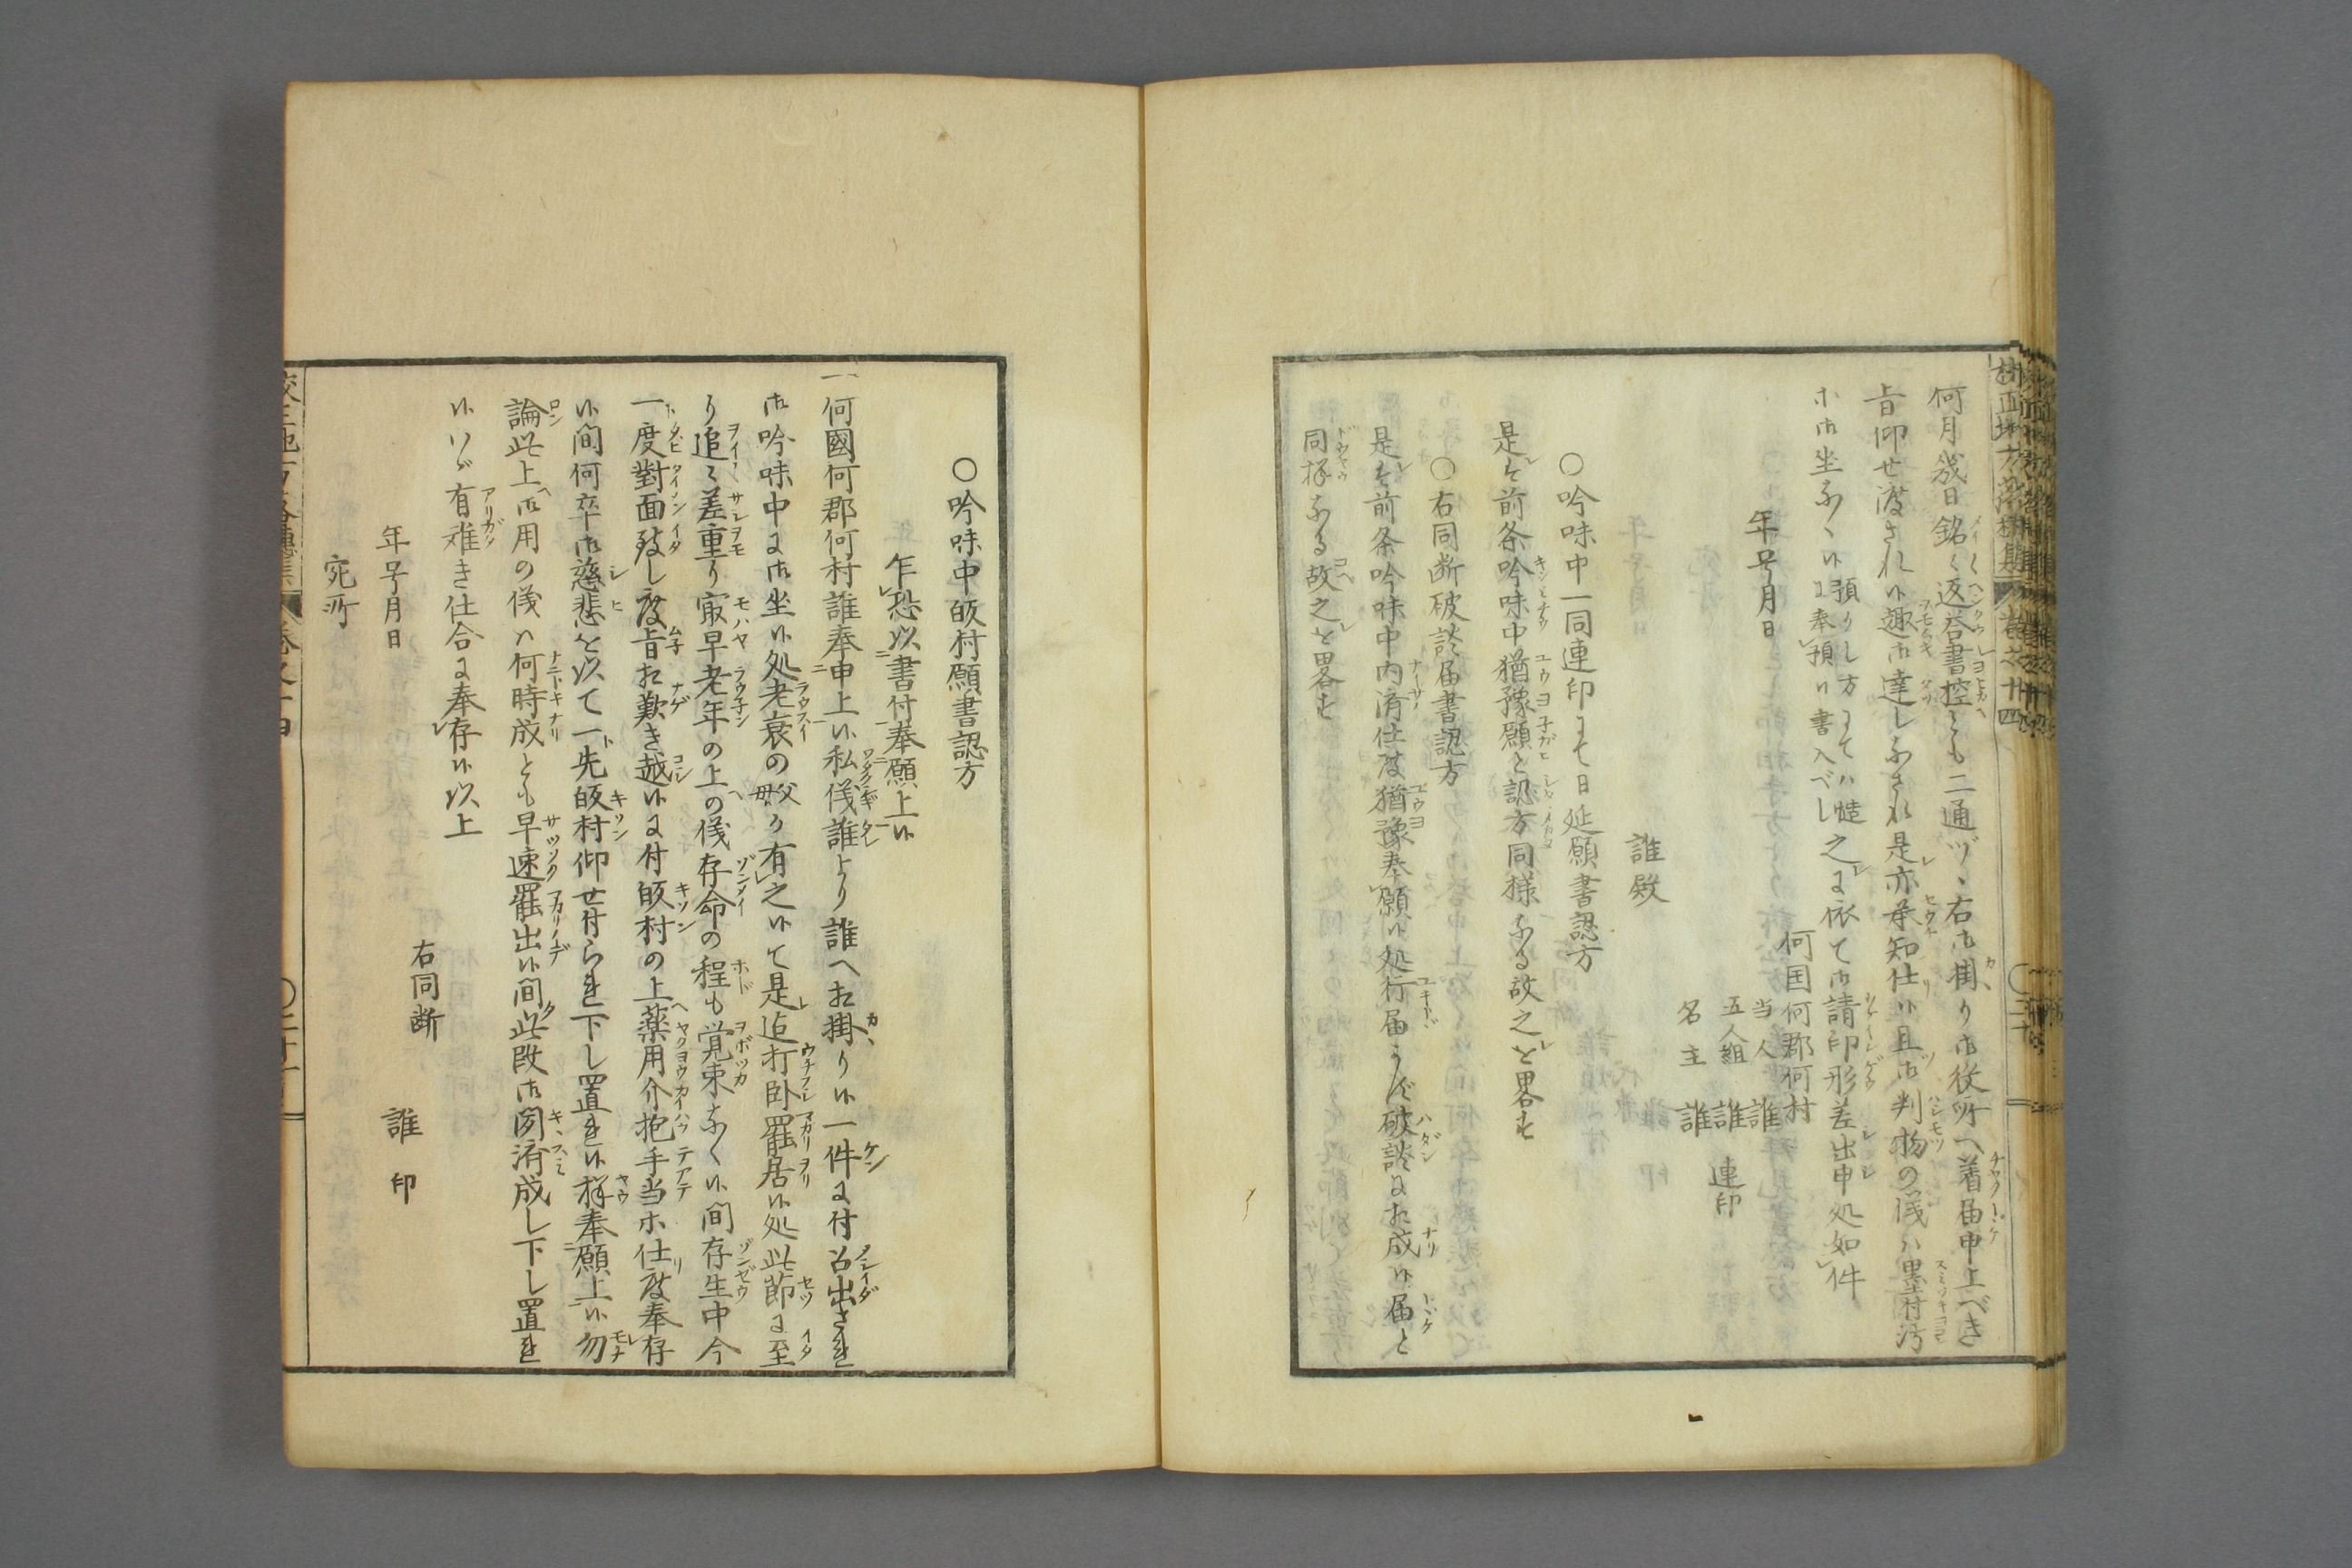 何月幾日銘〻返答書控とも二通ヅヽ右御掛り御役所へ着届申上べき
旨仰せ渡され候趣御達しなされ是亦承知仕り候且御判物の儀ハ墨付汚
ホ御坐なく候
預りし方にてハ慥
に奉預り書入べし
之に依て御請印形差出申処如件
年号月日
何国何郡何村
当人 誰
五人組 誰 連印
名主 誰
誰殿
○吟味中一同連印にて日延願書認方
是は前条吟味中猶豫願と認方同様なる故之を畧す
○右同断破談届書認方
是は前条吟味中内済仕度猶豫奉願候処行届かず破談に相成候届と
同様なる故之を畧す
○吟味中皈村願書認方
乍恐以書付奉願上候
一何國何郡何村誰奉申上候私儀誰より誰へ相掛り候一件に付召出され
御吟味中に御坐候処老衰の父母か有之候て是迄打臥罷居候処此節に至
り追〻差重り寂早老年の上の儀存命の程も覚束なく候間存生中今
一度對面致し度旨相歎き越候に付皈村の上薬用介抱手当ホ仕り度奉存
候間何卒御慈悲を以て一ト先皈村仰せ付られ下し置れ候様奉願上候勿
論此上御用の儀ハ何時成とも早速罷出候間此段御聞済成し下し置れ
候ハヾ有难き仕合に奉存候以上
年号月日
右同断
誰 印
宛所